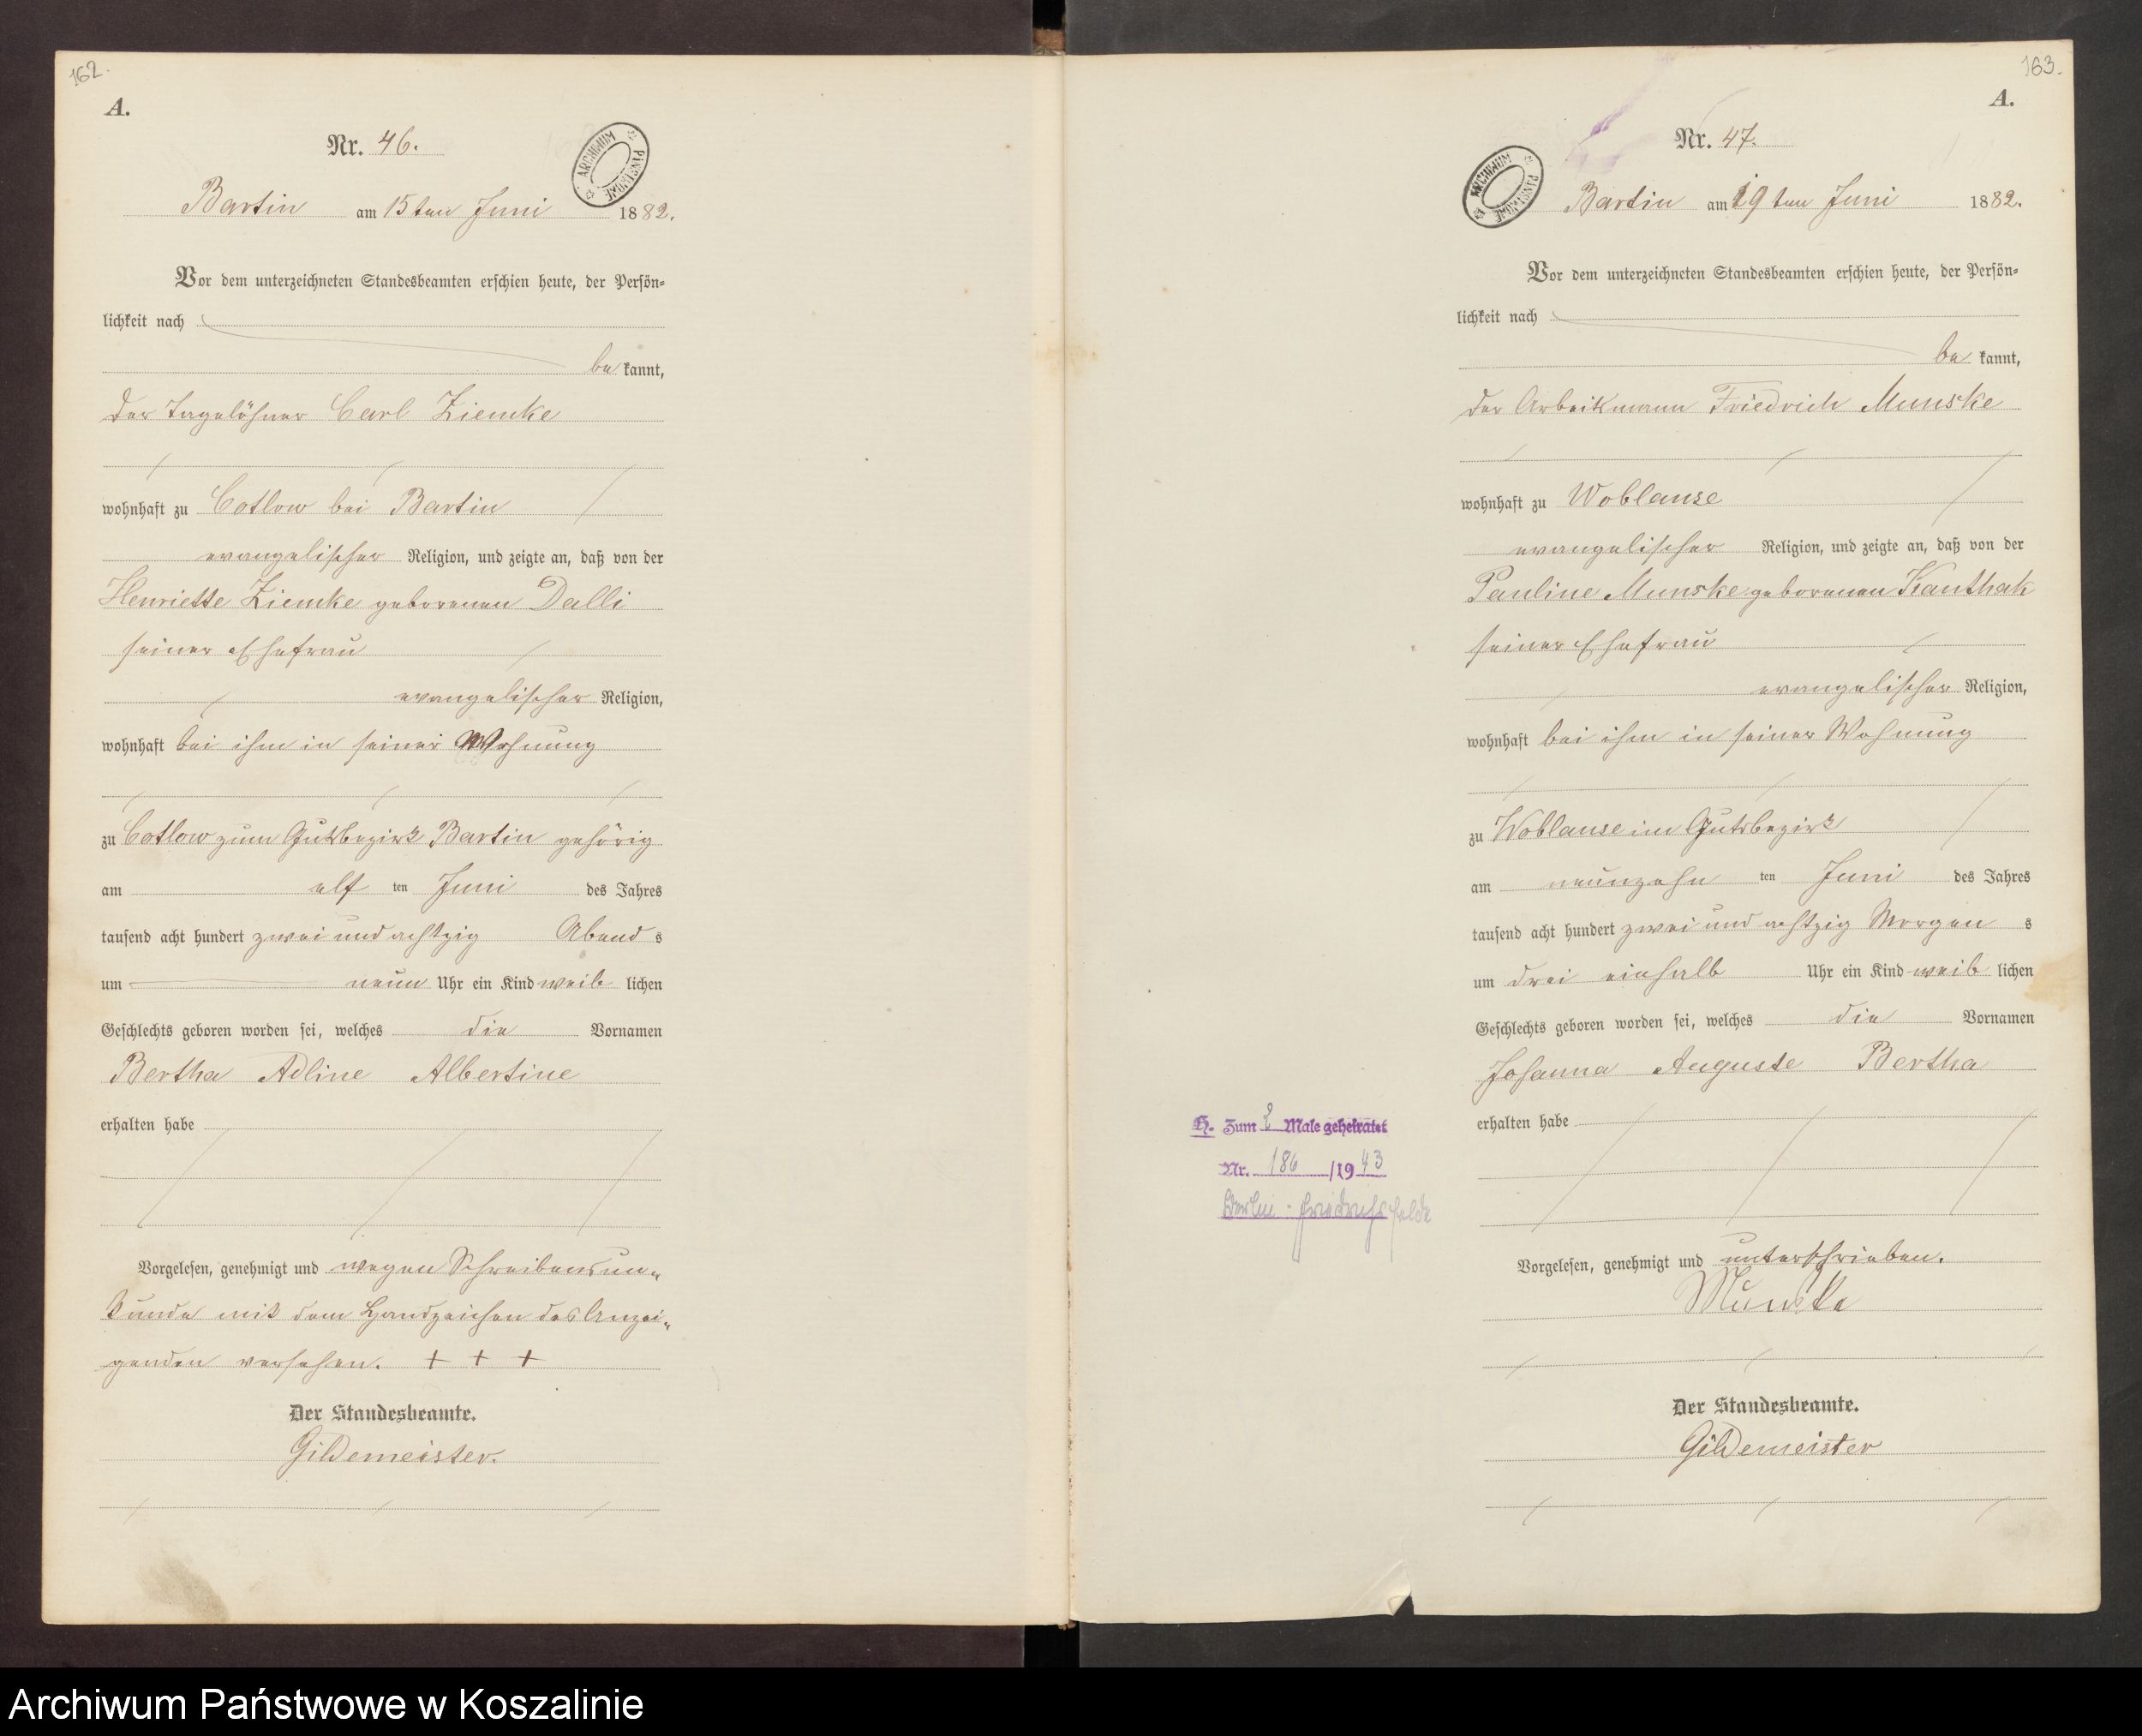 162.
A.
Nr. 46.
ARCHIWUM PAŃSTWOWE
Bartin am 15ten Juni 1882.
Vor dem unterzeichneten Standesbeamten erschien heute, der Persön-
lichkeit nach
be kannt,
der Tagelöhner Carl Ziemke
wohnhaft zu Cotlow bei Bartin
evangelischer Religion, und zeigte an, daß von der
Henriette Ziemke geborenen Dalli
seiner Ehefrau
evangelischer Religion,
wohnhaft bei ihm in seiner Wohnung
zu Cotlow zum Gutsbezirk Bartin gehörig
am elf ten Juni des Jahres
tausend acht hundert zwei und achtzig Abend s
um neun Uhr ein Kind weib lichen
Geschlechts geboren worden sei, welches die Vornamen
Bertha Adline Albertine
erhalten habe
Vorgelesen, genehmigt und wegen Schreibensun-
kunde mit dem Handzeichen des Anzei-
genden versehen. + + +
Der Standesbeamte.
Gildemeister.
163.
A.
Nr. 47.
ARCHIWUM PAŃSTWOWE
Bartin am 19ten Juni 1882.
Vor dem unterzeichneten Standesbeamten erschien heute, der Persön-
lichkeit nach
be kannt,
der Arbeitsmann Friedrich Munske
wohnhaft zu Woblanse
evangelischer Religion, und zeigte an, daß von der
Pauline Munske geborenen Kanthak
seiner Ehefrau
evangelischer Religion,
wohnhaft bei ihm in seiner Wohnung
zu Woblanse im Gutsbezirk
am neunzehn ten Juni des Jahres
tausend acht hundert zwei und achtzig Morgen s
um drei einhalb Uhr ein Kind weib lichen
Geschlechts geboren worden sei, welches die Vornamen
Johanna Auguste Bertha
erhalten habe
H. Zum 2 Male geheiratet
Nr. 186 /1943
Berlin-Friedrichsfelde
Vorgelesen, genehmigt und unterschrieben.
Munske
Der Standesbeamte.
Gildemeister
Archiwum Państwowe w Koszalinie